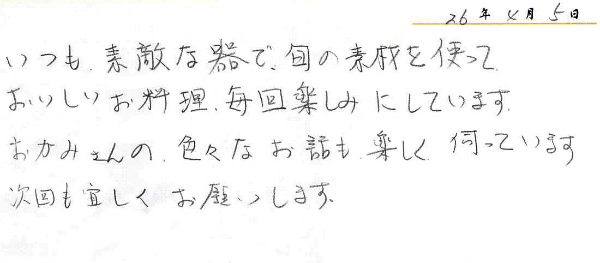 26年4月5日
いつも、素敵な器で、旬の素材を使って
おいしいお料理、毎回楽しみにしています。
おかみさんの、色々なお話も、楽しく、伺っています
次回も宜しくお願いします。